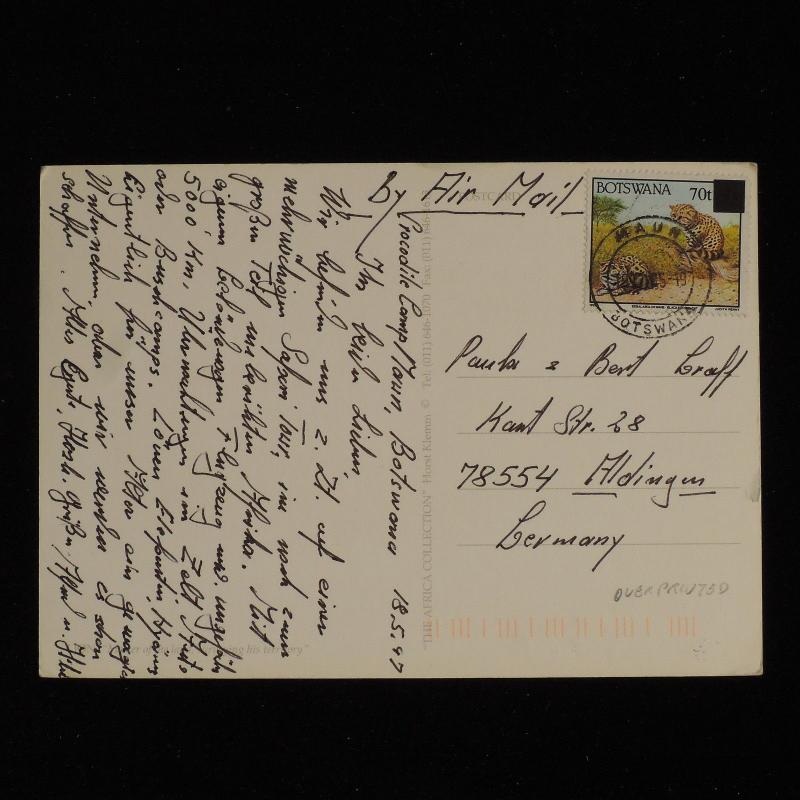 By Air Mail
POSTCARD
BOTSWANA 70t
MAUN
BOTSWANA
Paula & Bert Graff
Kant Str. 28
78554 Aldingen
Germany
OVERPRINTED
Crocodile Camp/Maun, Botswana 18.5.97
Ihr Lieben,
Wir befinden uns z. Zt. auf einer
mehrwöchigen Safari Tour, im noch zum
großen Teil unberührten Afrika. Mit
eigenem Flugzeug und
5000 km, Übernachtungen im Zelt
oder Buschcamps. Löwen, Elefanten, Hyänen
Eigentlich für unser Alter ein gewagtes
Unternehmen, aber wir werden es schon
schaffen. Alles Gute, Herzl. Grüße,
"THE AFRICA COLLECTION" Horst Klemm © Tel: (011) 646-1070 Fax: (011) 646-
his territory"